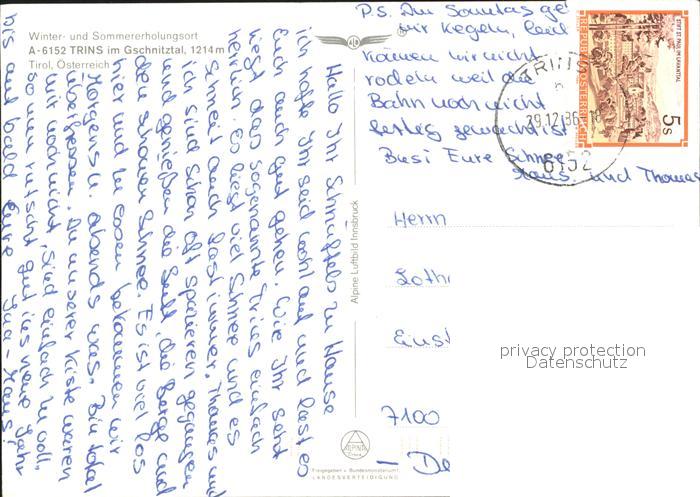 Winter- und Sommererholungsort
A-6152 TRINS im Gschnitztal, 1214 m
Tirol, Österreich
Hallo Ihr Schnuffels zu Hause
ich hoffe Ihr seid wohl auf und lasst es
Euch auch gut gehen. Wie Ihr seht
liegt das sogenannte Trins einfach
herrlich. Es liegt viel Schnee und es
schneit auch fast immer. Thomas und
ich sind schon oft spazieren gegangen
und genießen die Luft die Berge und
den schönen Schnee. Es ist viel los
hier und zu essen bekommen wir
Morgens u. abends was. Bin total
überfressen. In unserer Kiste waren
wir noch nicht, sind einfach zu voll.
so nun rutscht gut ins neue Jahr
bis auf bald Eure
P.S. Am Sonntag ge
wir Kegeln, leid
können wir nicht
rodeln weil die
Bahn noch nicht
fertig gemacht ist
Busi Eure Schnee
Hans und Thomas
STIFT ST. PAUL IM LAVANTTAL
REPUBLIK ÖSTERREICH
5 S
TRINS
29.12.86-18
6152
Alpine Luftbild Innsbruck
Herrn
Loth
Einst
7100
De
privacy protection
Datenschutz
ALPINE
Freigegeben v. Bundesministerium f.
LANDESVERTEIDIGUNG